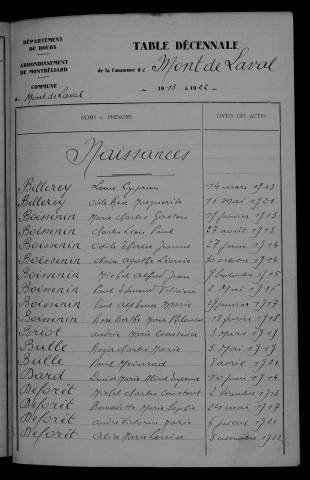 DÉPARTEMENT
DU DOUBS
ARRONDISSEMENT
DE MONTBÉLIARD
COMMUNE
de Mont de Laval
TABLE DÉCENNALE
de la Commune de Mont de Laval
1913 à 1922
NOMS ET PRÉNOMS DATES DES ACTES
Naissances
Billerey Louis Cyprien 14 mars 1913
Billerey Odile Rose Marguerite 16 mai 1921
Boissenin Marie Charles Gaston 17 janvier 1913
Boissenin Charles Léon Paul 27 août 1913
Boissenin Odile Thérèse Jeanne 27 juin 1914
Boissenin Claire Agathe Léonie 20 octobre 1914
Boissenin Michel Alfred Jean 9 septembre 1915
Boissenin Paul Edmond 2 mai 1916
Boissenin Paul Alphonse Marie janvier 1917
Boissenin Rose Berthe Marie Philomène 18 février 1918
Briot Andrée Marie Constance 3 mars 1919
Bulle Roger Charles Marie 5 mai 1919
Bulle Paul Meinrad 8 avril 1921
Dard Louise Marie Eugénie 10 juin 1914
Deforêt Michel Charles Constant 2 décembre 1913
Deforêt Bernadette Marie Sophie 24 mai 1917
Deforêt André Victorin Marie 6 1921
Deforêt Alice Marie Louise 5 novembre 1922